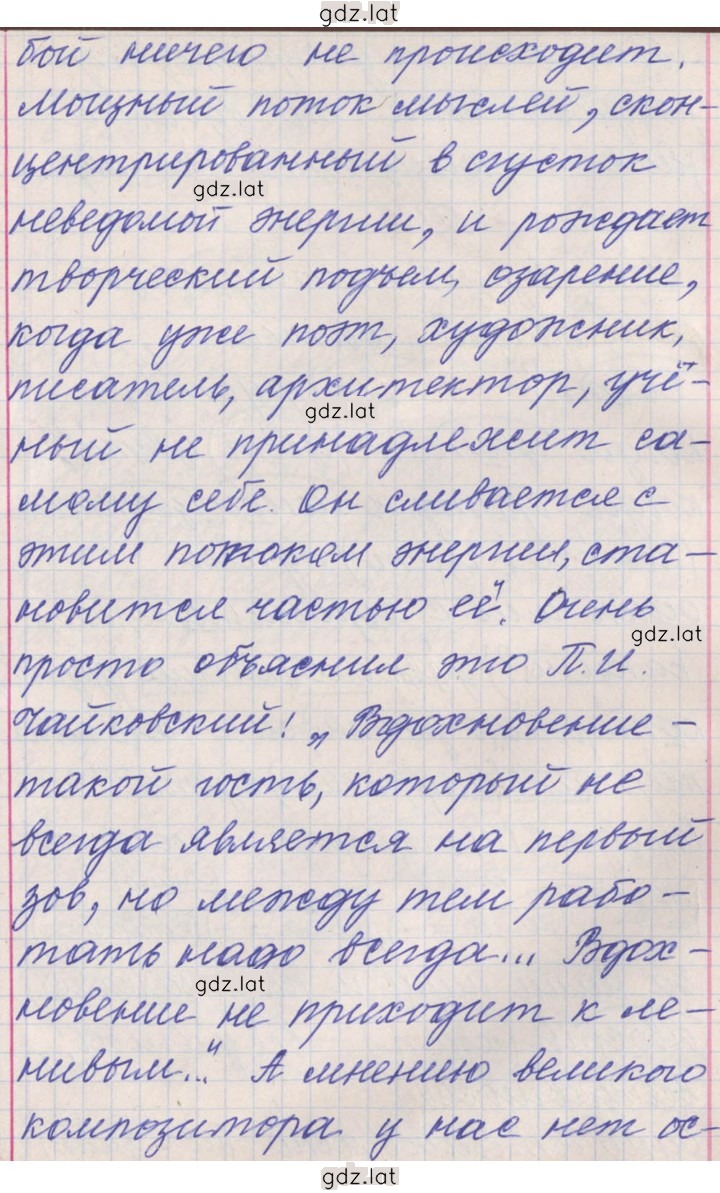 gdz.lat
бой ничего не происходит.
Мощный поток мыслей, скон-
центрированный в сгусток
gdz.lat
неведомой энергии, и рождает
творческий подъем, озарение,
когда уже поэт, художник,
писатель, архитектор, учё-
gdz.lat
ный не принадлежит са-
мому себе. Он сливается с
этим потоком энергии, ста-
новится частью её". Очень
gdz.lat
просто объяснил это П.И.
Чайковский: „Вдохновение -
такой гость, который не
всегда является на первый
зов, но между тем рабо-
тать надо всегда... Вдох-
gdz.lat
новение не приходит к ле-
нивым..." А мнению великого
композитора у нас нет ос-
gdz.lat